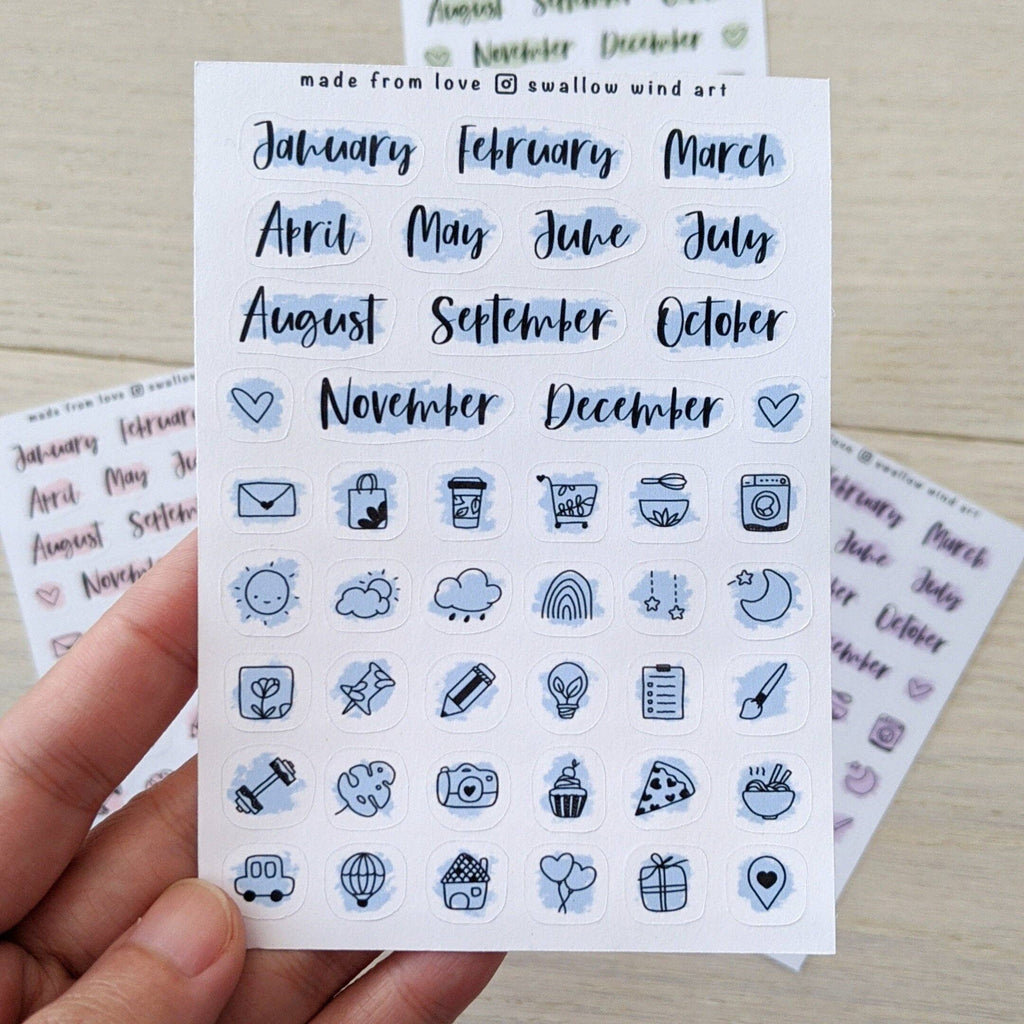 August
November December
made from love swallow wind art
January February March
April May June July
August September October
November December
made from love swallow
January
April May
August
love swallow wind art
March
June July
October